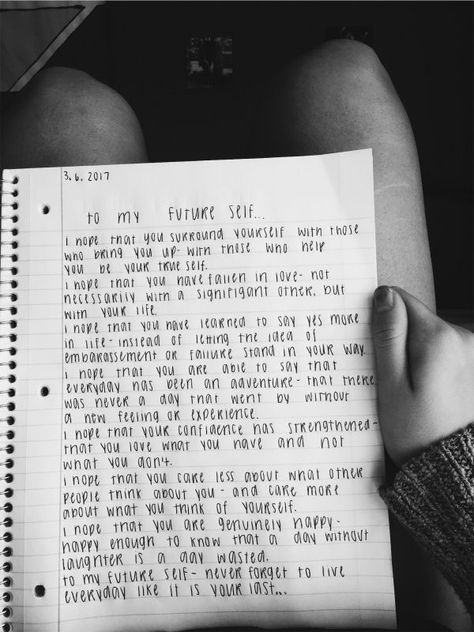 3.6.2017
to my future self...
I hope that you surround yourself with those
who bring you up- with those who help
you be your true self.
I hope that you have fallen in love- not
necessarily with a signifigant other, but
with your life.
I hope that you have learned to say yes more
in life - instead of letting the idea of
embarassement or failure stand in your way.
I hope that you are able to say that
everyday has been an adventure - that there
was never a day that went by without
a new feeling or experience.
I hope that your confidence has strengthened-
that you love what you have and not
what you don't.
I hope that you care less about what other
people think about you - and care more
about what you think of yourself.
I hope that you are genuinely happy -
happy enough to know that a day without
laughter is a day wasted.
to my future self - never forget to live
everyday like it is your last...